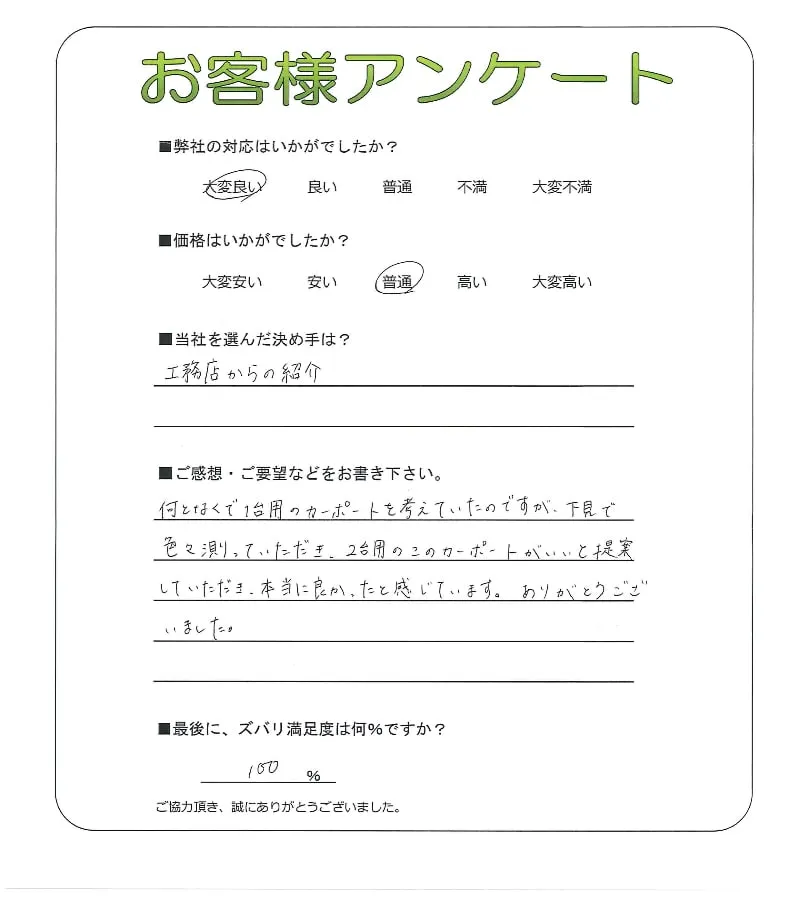 お客様アンケート
■弊社の対応はいかがでしたか？
大変良い 良い 普通 不満 大変不満
■価格はいかがでしたか？
大変安い 安い 普通 高い 大変高い
■当社を選んだ決め手は？
工務店からの紹介
■ご感想・ご要望などをお書き下さい。
何となくで1台用のカーポートを考えていたのですが、下見で
色々測っていただき、2台用のこのカーポートがいいと提案
していただき、本当に良かったと感じています。ありがとうござ
いました。
■最後に、ズバリ満足度は何%ですか？
100 %
ご協力頂き、誠にありがとうございました。